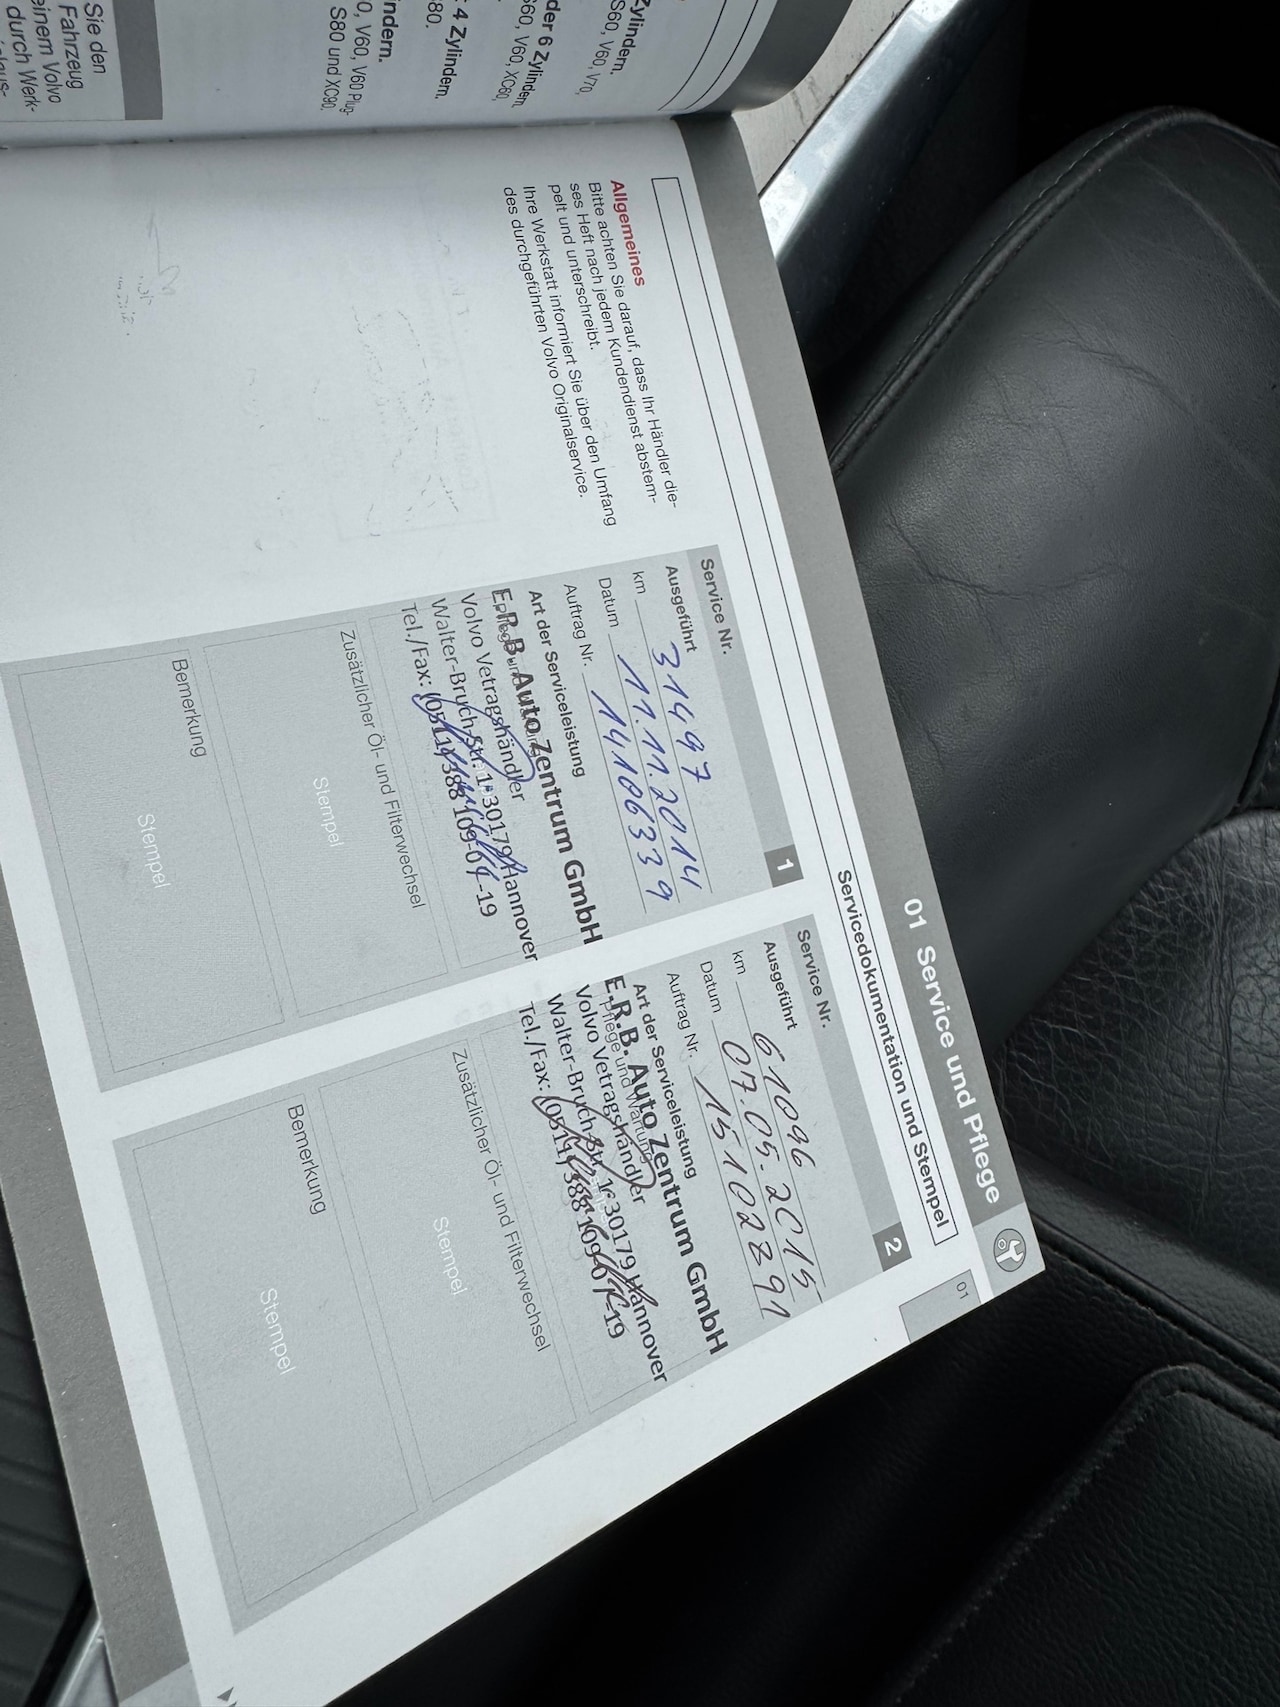 Zylindern.
S60, V60, V70,
der 6 Zylindern
S60, V60, XC60,
4 Zylindern.
S80.
ndern.
0, V60, V60 Plug-
S80 und XC90,
Sie den
Fahrzeug
einem Volvo
durch Werk-
01 Service und Pflege
01
Servicedokumentation und Stempel
Allgemeines
Bitte achten Sie darauf, dass Ihr Händler die-
ses Heft nach jedem Kundendienst abstem-
pelt und unterschreibt.
Ihre Werkstatt informiert Sie über den Umfang
des durchgeführten Volvo Originalservice.
Service Nr. 1
Ausgeführt
km 31497
Datum 11.11.2014
Auftrag Nr. 14106339
Art der Serviceleistung
E.R.B. Auto Zentrum GmbH
Volvo Vetragshändler
Walter-Bruch-Str. 1·30179 Hannover
Tel./Fax: (0511) 388 109-0/-19
Zusätzlicher Öl- und Filterwechsel
Stempel
Bemerkung
Stempel
Service Nr. 2
Ausgeführt
km 61096
Datum 07.05.2015
Auftrag Nr. 15102391
Art der Serviceleistung
Pflege und Wartung
E.R.B. Auto Zentrum GmbH
Volvo Vetragshändler
Walter-Bruch-Str. 1·30179 Hannover
Tel./Fax: (0511) 388 109-0/-19
Zusätzlicher Öl- und Filterwechsel
Stempel
Bemerkung
Stempel